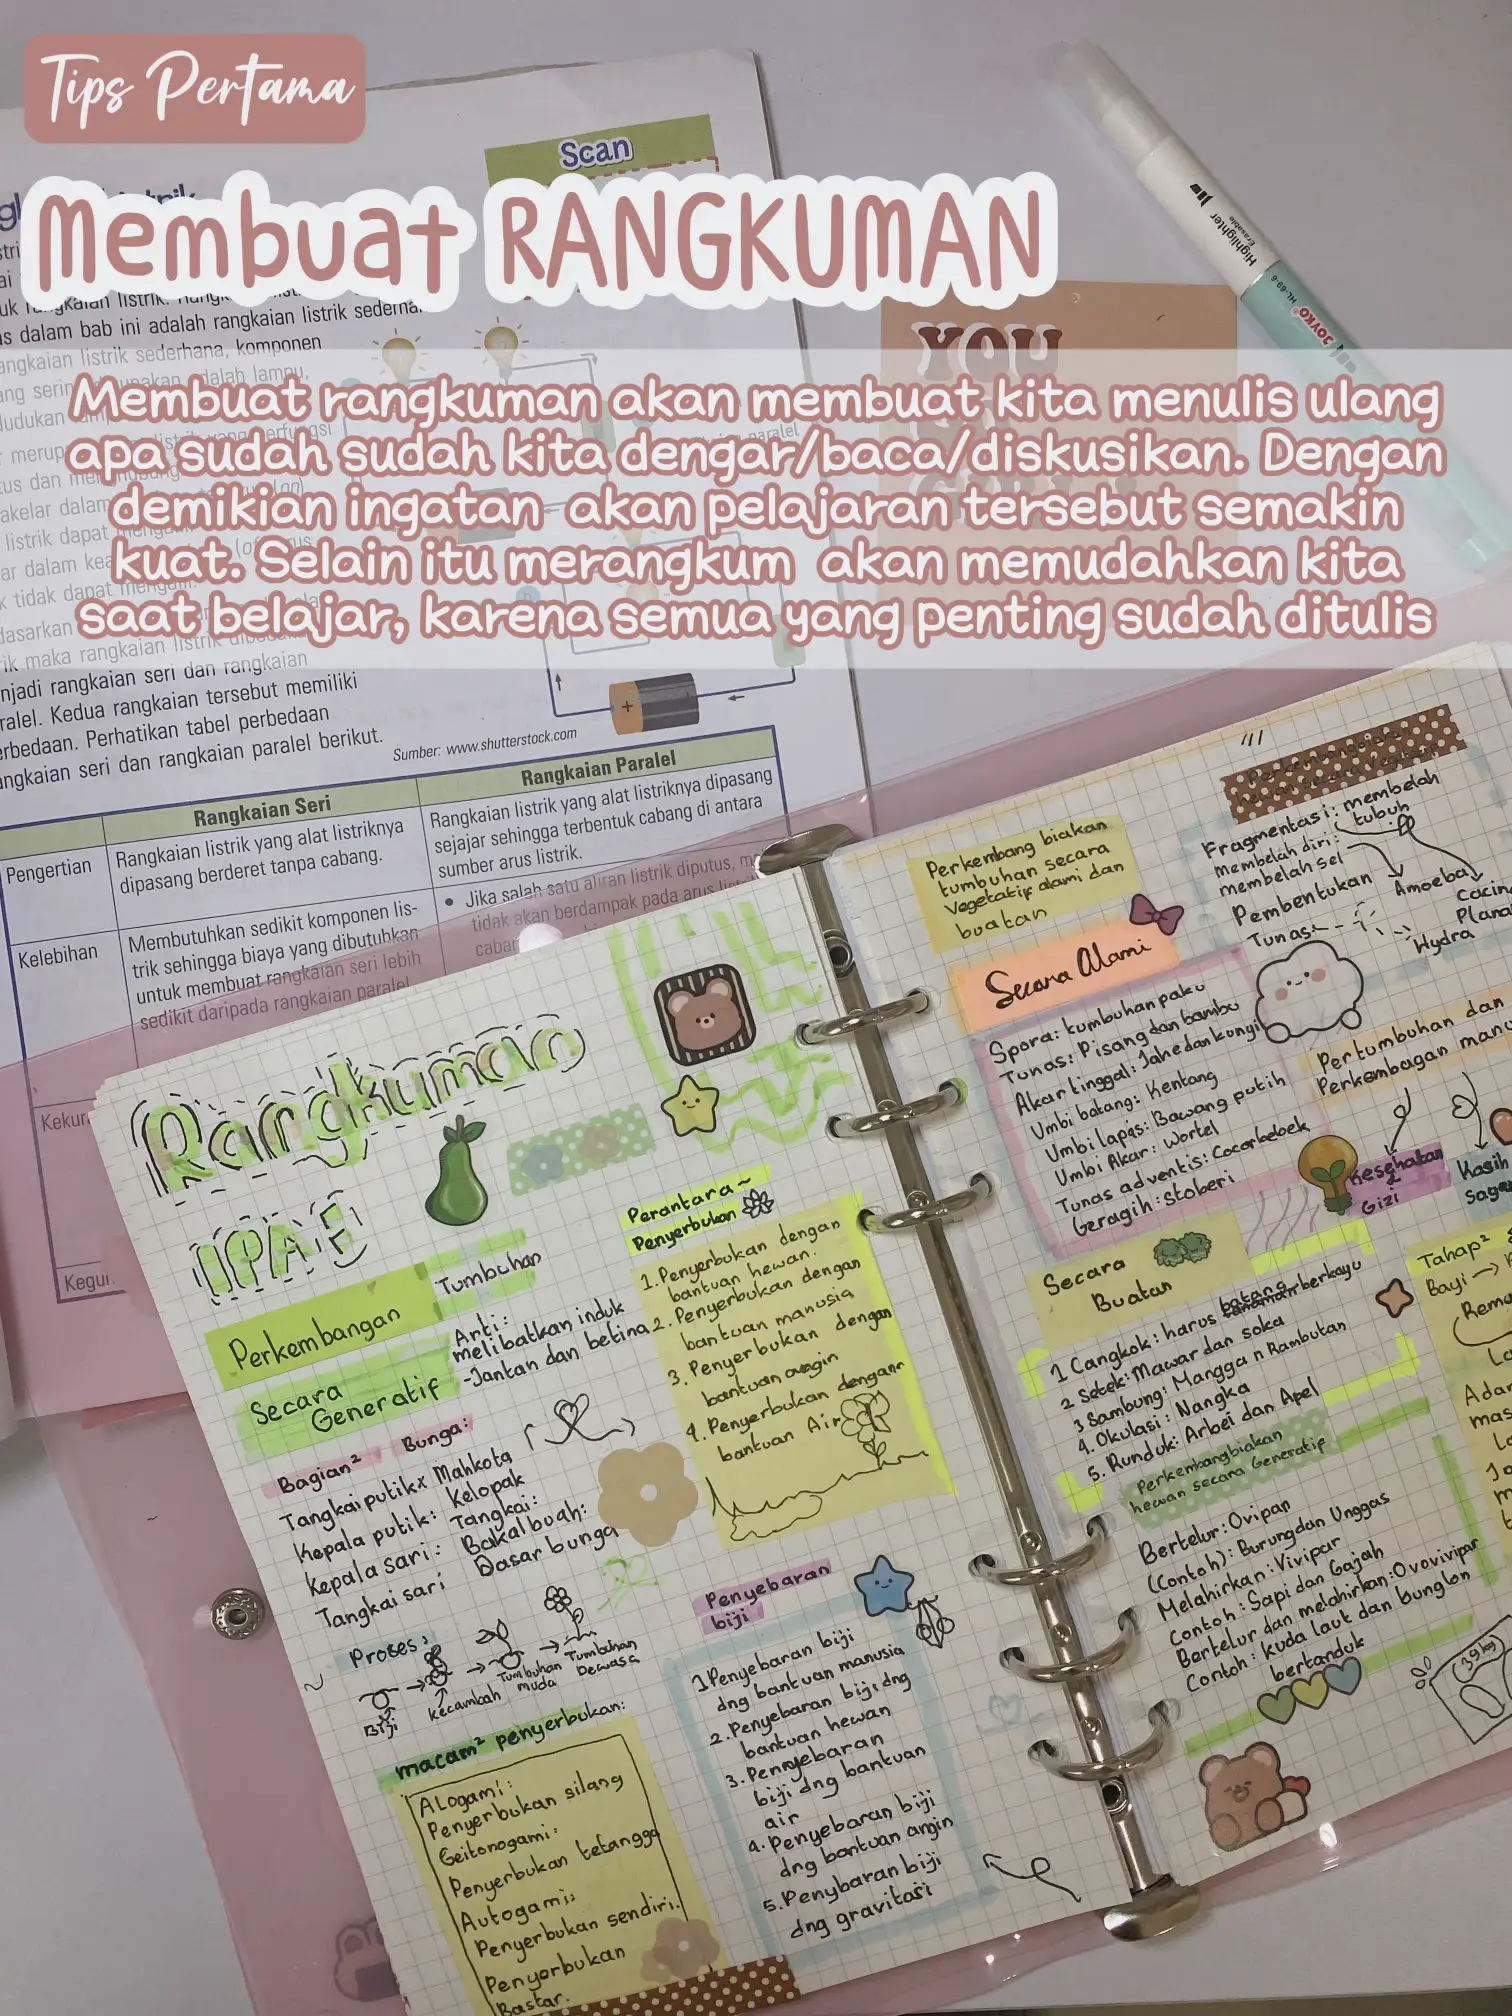 Tips Pertama
Membuat RANGKUMAN
Membuat rangkuman akan membuat kita menulis ulang
apa sudah sudah kita dengar/baca/diskusikan. Dengan
demikian ingatan akan pelajaran tersebut semakin
kuat. Selain itu merangkum akan memudahkan kita
saat belajar, karena semua yang penting sudah ditulis
Scan
s dalam bab ini adalah rangkaian listrik sederha
angkaian listrik sederhana, komponen
YOU
Highlighter
Erasable
HL-69-6
JOYKO
njadi rangkaian seri dan rangkaian
ralel. Kedua rangkaian tersebut memiliki
erbedaan. Perhatikan tabel perbedaan
angkaian seri dan rangkaian paralel berikut.
Sumber: www.shutterstock.com
Rangkaian Seri
Rangkaian Paralel
Pengertian
Rangkaian listrik yang alat listriknya
dipasang berderet tanpa cabang.
Rangkaian listrik yang alat listriknya dipasang
sejajar sehingga terbentuk cabang di antara
sumber arus listrik.
Kelebihan
Membutuhkan sedikit komponen lis-
trik sehingga biaya yang dibutuhkan
untuk membuat rangkaian seri lebih
sedikit daripada rangkaian paralel
• Jika salah satu aliran listrik diputus, m
tidak akan berdampak pada arus
Rangkuman
IPAE
Perkembangan
Tumbuhan
Secara
Generatif
Arti:
melibatkan induk
-Jantan dan betina
Bagian² Bunga:
Tangkai putikx Mahkota
Kepala putik: Kelopak
Kepala sari: Tangkai:
Tangkai sari Bakal buah:
Dasar bunga
Proses:
Biji
kecambah
Tumbuhan
muda
Tumbuhan
Dewasa
macam² penyerbukan:
ALogami:
Penyerbukan silang
Geitonogami:
Penyerbukan tetangga
Autogami:
Penyerbukan sendiri.
Penyorbukan
Bastar.
Perantara~
Penyerbukan
1. Penyerbukan dengan
bantuan hewan.
2. Penyerbukan dengan
bantuan manusia
3. Penyerbukan dengan
bantuan angin
4. Penyerbukan dengan
bantuan Air
Penyebaran
biji
1 Penyebaran biji
dng bantuan manusia
2. Penyebaran biji dng
bantuan hewan
3. Penyebaran
biji dng bantuan
air
4. Penyebaran biji
dng bantuan angin
5. Penybaran biji
dng gravitasi
Perkembang biakan
tumbuhan secara
Vegetatif alami dan
buatan
Secara Alami
Spora: tumbuhan paku
Tunas: Pisang dan bambu
Akar tinggal: Jahe dan kunyit
Umbi batang: Kentang
Umbi lapis: Bawang putih
Umbi Akar: wortel
Tunas adventis: Cocorbebek
Geragih: Stoberi
Secara
Buatan
1 Cangkok: harus batang berkayu
2 Setek: Mawar dan soka
3 Sambung: Mangga n Rambutan
4. Okulasi: Nangka
5. Runduk: Arbei dan Apel
Perkembangbiakan
hewan secara Generatif
Bertelur: Ovipar
(Contoh): Burung dan Unggas
Melahirkan: Vivipar
Contoh: Sapi dan Gajah
Bertelur dan melahirkan: Ovovivipar
Contoh: kuda laut dan bunglon
bertanduk
Fragmentasi: membelah
tubuh
membelah diri:
membelah sel
Amoeba
Pembentukan
Tunas
Hydra
Pertumbuhan dan
Perkembagan manu
Kesehatan
Gizi
Kasih
Tahap²
Bayi →
39 kg